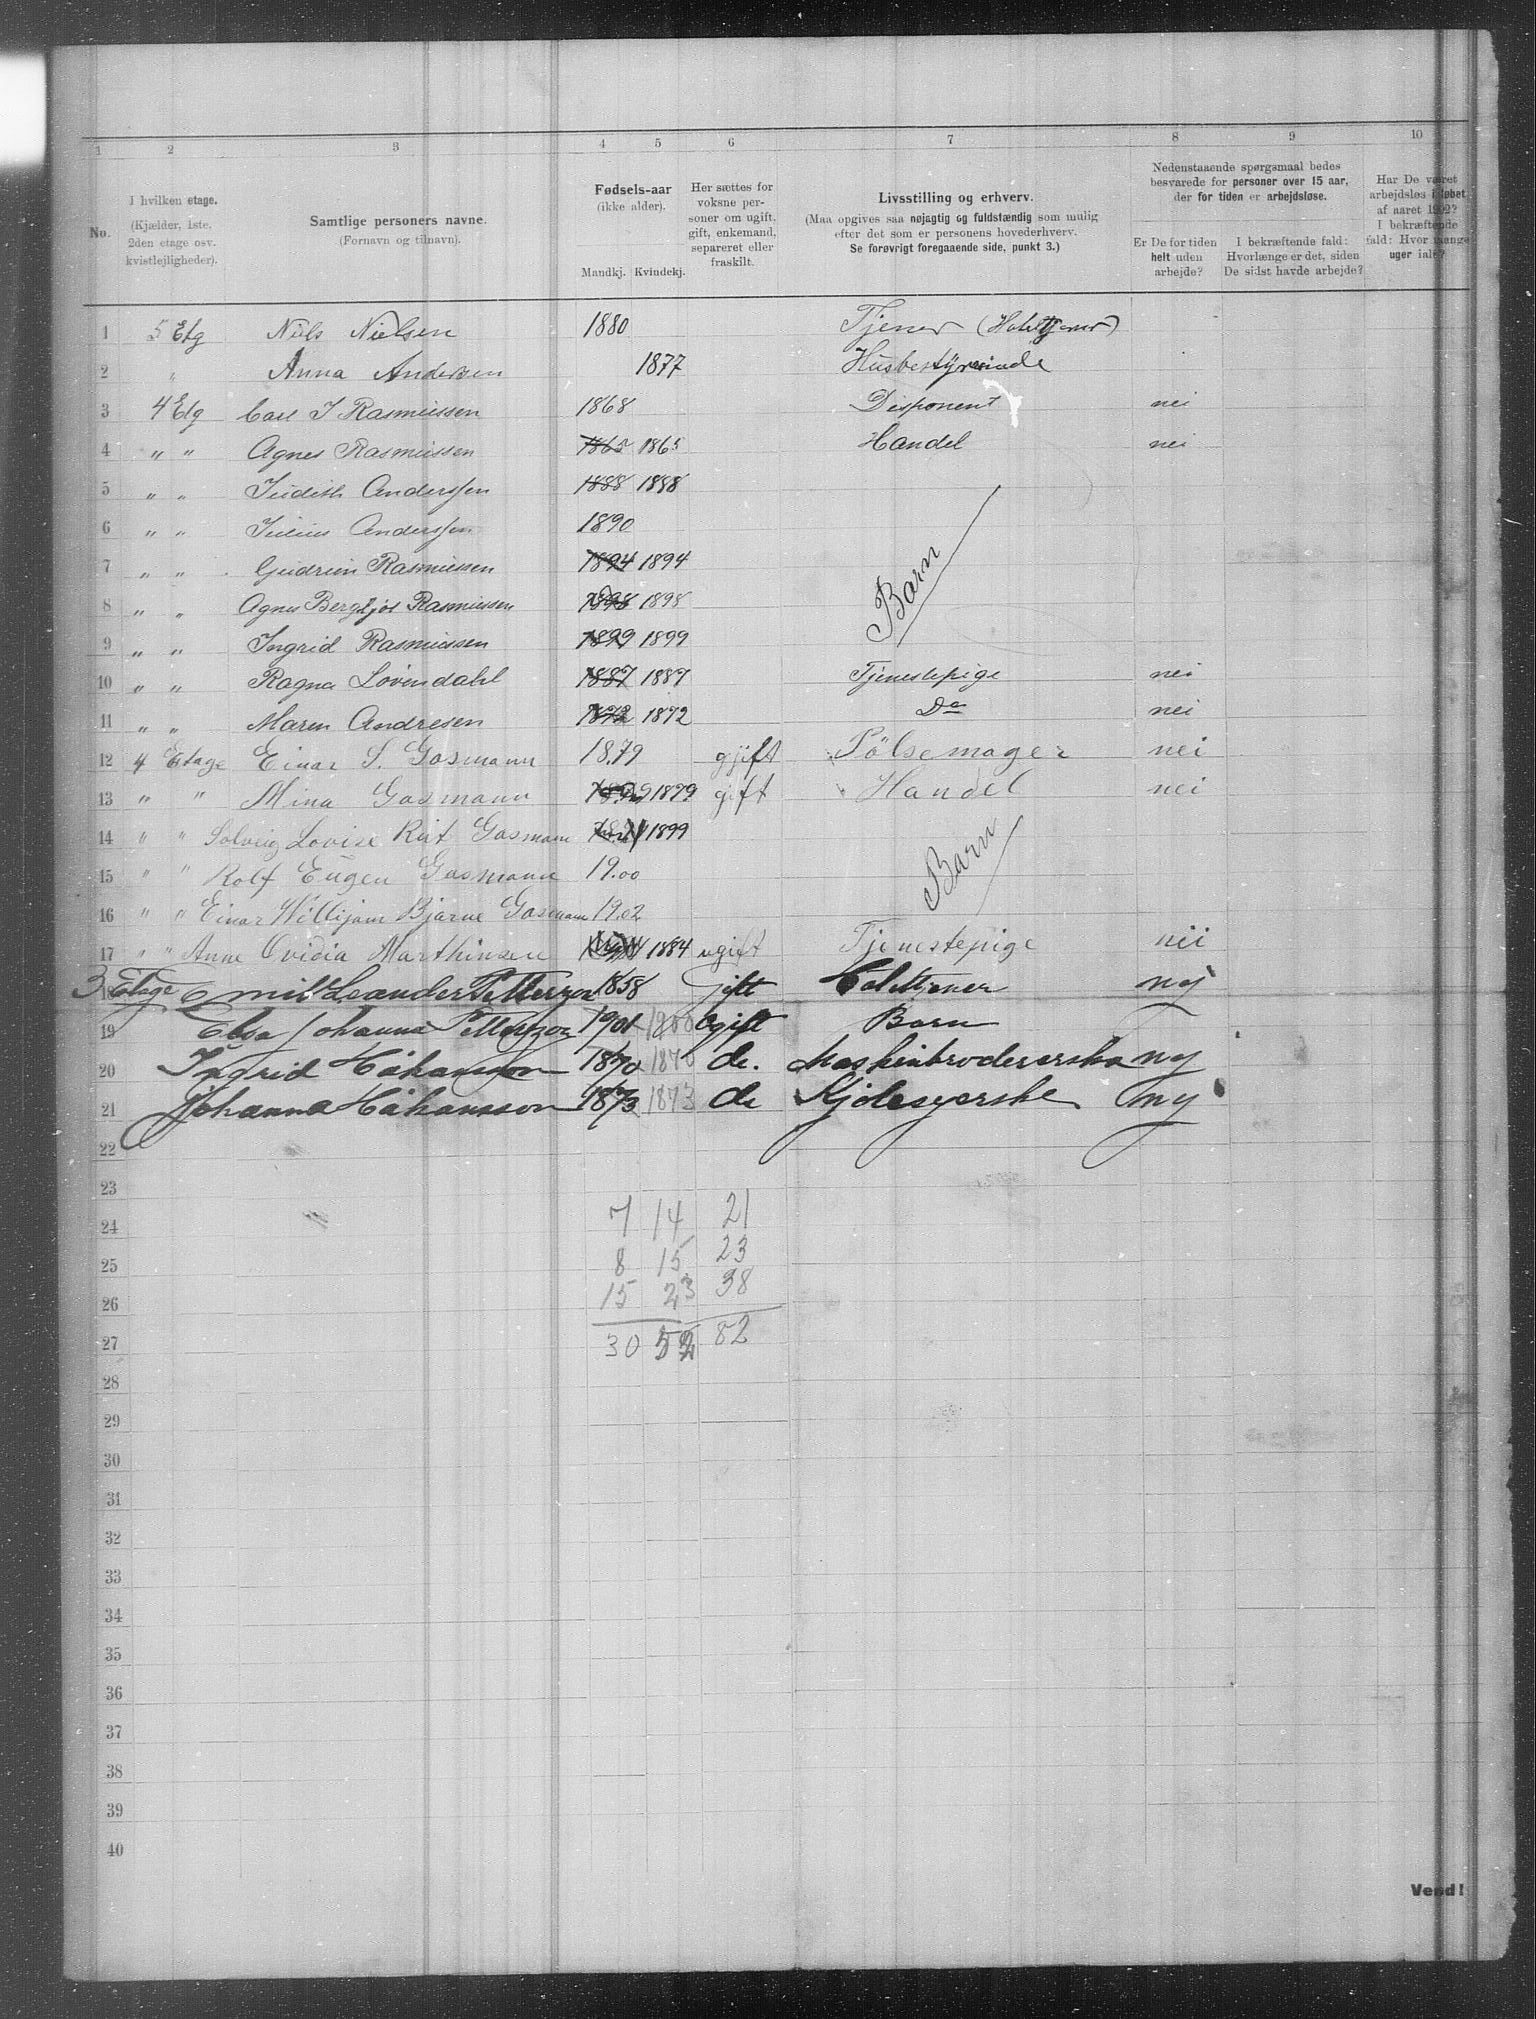 1 2 3 4 5 6 7 8 9 10
No.
I hvilken etage.
(Kjælder, 1ste.
2den etage osv.
kvistlejligheder).
Samtlige personers navne.
(Fornavn og tilnavn).
Fødsels-aar
(ikke alder).
Mandkj. Kvindekj.
Her sættes for
voksne per-
soner om ugift,
gift, enkemand,
separeret eller
fraskilt.
Livsstilling og erhverv.
(Maa opgives saa nøjagtig og fuldstændig som mulig
efter det som er personens hovederhverv.
Se forøvrigt foregaaende side, punkt 3.)
Nedenstaaende spørgsmaal bedes
besvarede for personer over 15 aar,
der for tiden er arbejdsløse.
Er De for tiden
helt uden
arbejde?
I bekræftende fald:
Hvorlænge er det, siden
De sidst havde arbejde?
Har De været
arbejdsløs i løbet
af aaret 1902?
I bekræftende
fald: Hvor mange
uger ialt?
1 5 Etg Niels Nielsen 1880 Tjener (Hoteltjener)
2 " Anna Andersen 1877 Husbestyrerinde
3 4 Etg Carl J Rasmussen 1868 Disponent nei
4 " " Agnes Rasmussen 1865 1865 Handel nei
5 " " Judith Anderssen 1888 1888
6 " " Julius Anderssen 1890
7 " " Gudrun Rasmussen 1894 1894 Barn
8 " " Agnes Bergljot Rasmussen 1898 1898
9 " " Ingrid Rasmussen 1899 1899
10 " " Ragna Lövendahl 1887 1887 Tjenestepige nei
11 " " Maren Andresen 1872 1872 Do nei
12 4 Etage Einar S. Gasmann 18.79 gjift Pölsemager nei
13 " " Mina Gasmann 1879 gift Handel nei
14 " " Solveig Lovise Rut Gasmann 1899 Barn
15 " " Rolf Eugen Gasmann 19.00
16 " " Einar Willijam Bjarne Gasmann 19.02
17 " " Anne Ovidia Marthinsen 1884 ugift Tjenestepige nei
18 3 Etage Emil Leander Petterzon 1858 gift ny
19 Elsa Johanna Petterzon 1901 1900 Ogift Barn
20 Ingrid Håkansson 1870 1870 do. Maskinbrodererska ny
21 Johanna Håkansson 1873 1873 do Kjolesyerske ny
22
23
24 7 14 21
25 8 15 23
26 15 23 38
27 30 52 82
28
29
30
31
32
33
34
35
36
37
38
39
40
Vend!